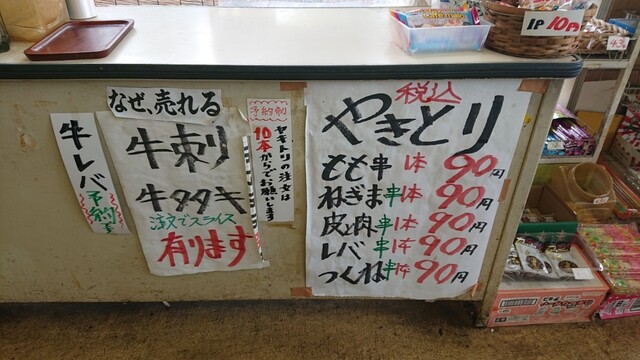 1P 10円
43
なぜ、売れる
牛刺り
牛タタキ
注文でスライス
有ります
牛レバ
予約
予約制
ヤキトリの注文は
10本からでお願いします
税込
やきとり
もも串 1本 90円
ねぎま串 1本 90円
皮と肉串 1本 90円
レバー串 1本 90円
つくね串 1本 90円